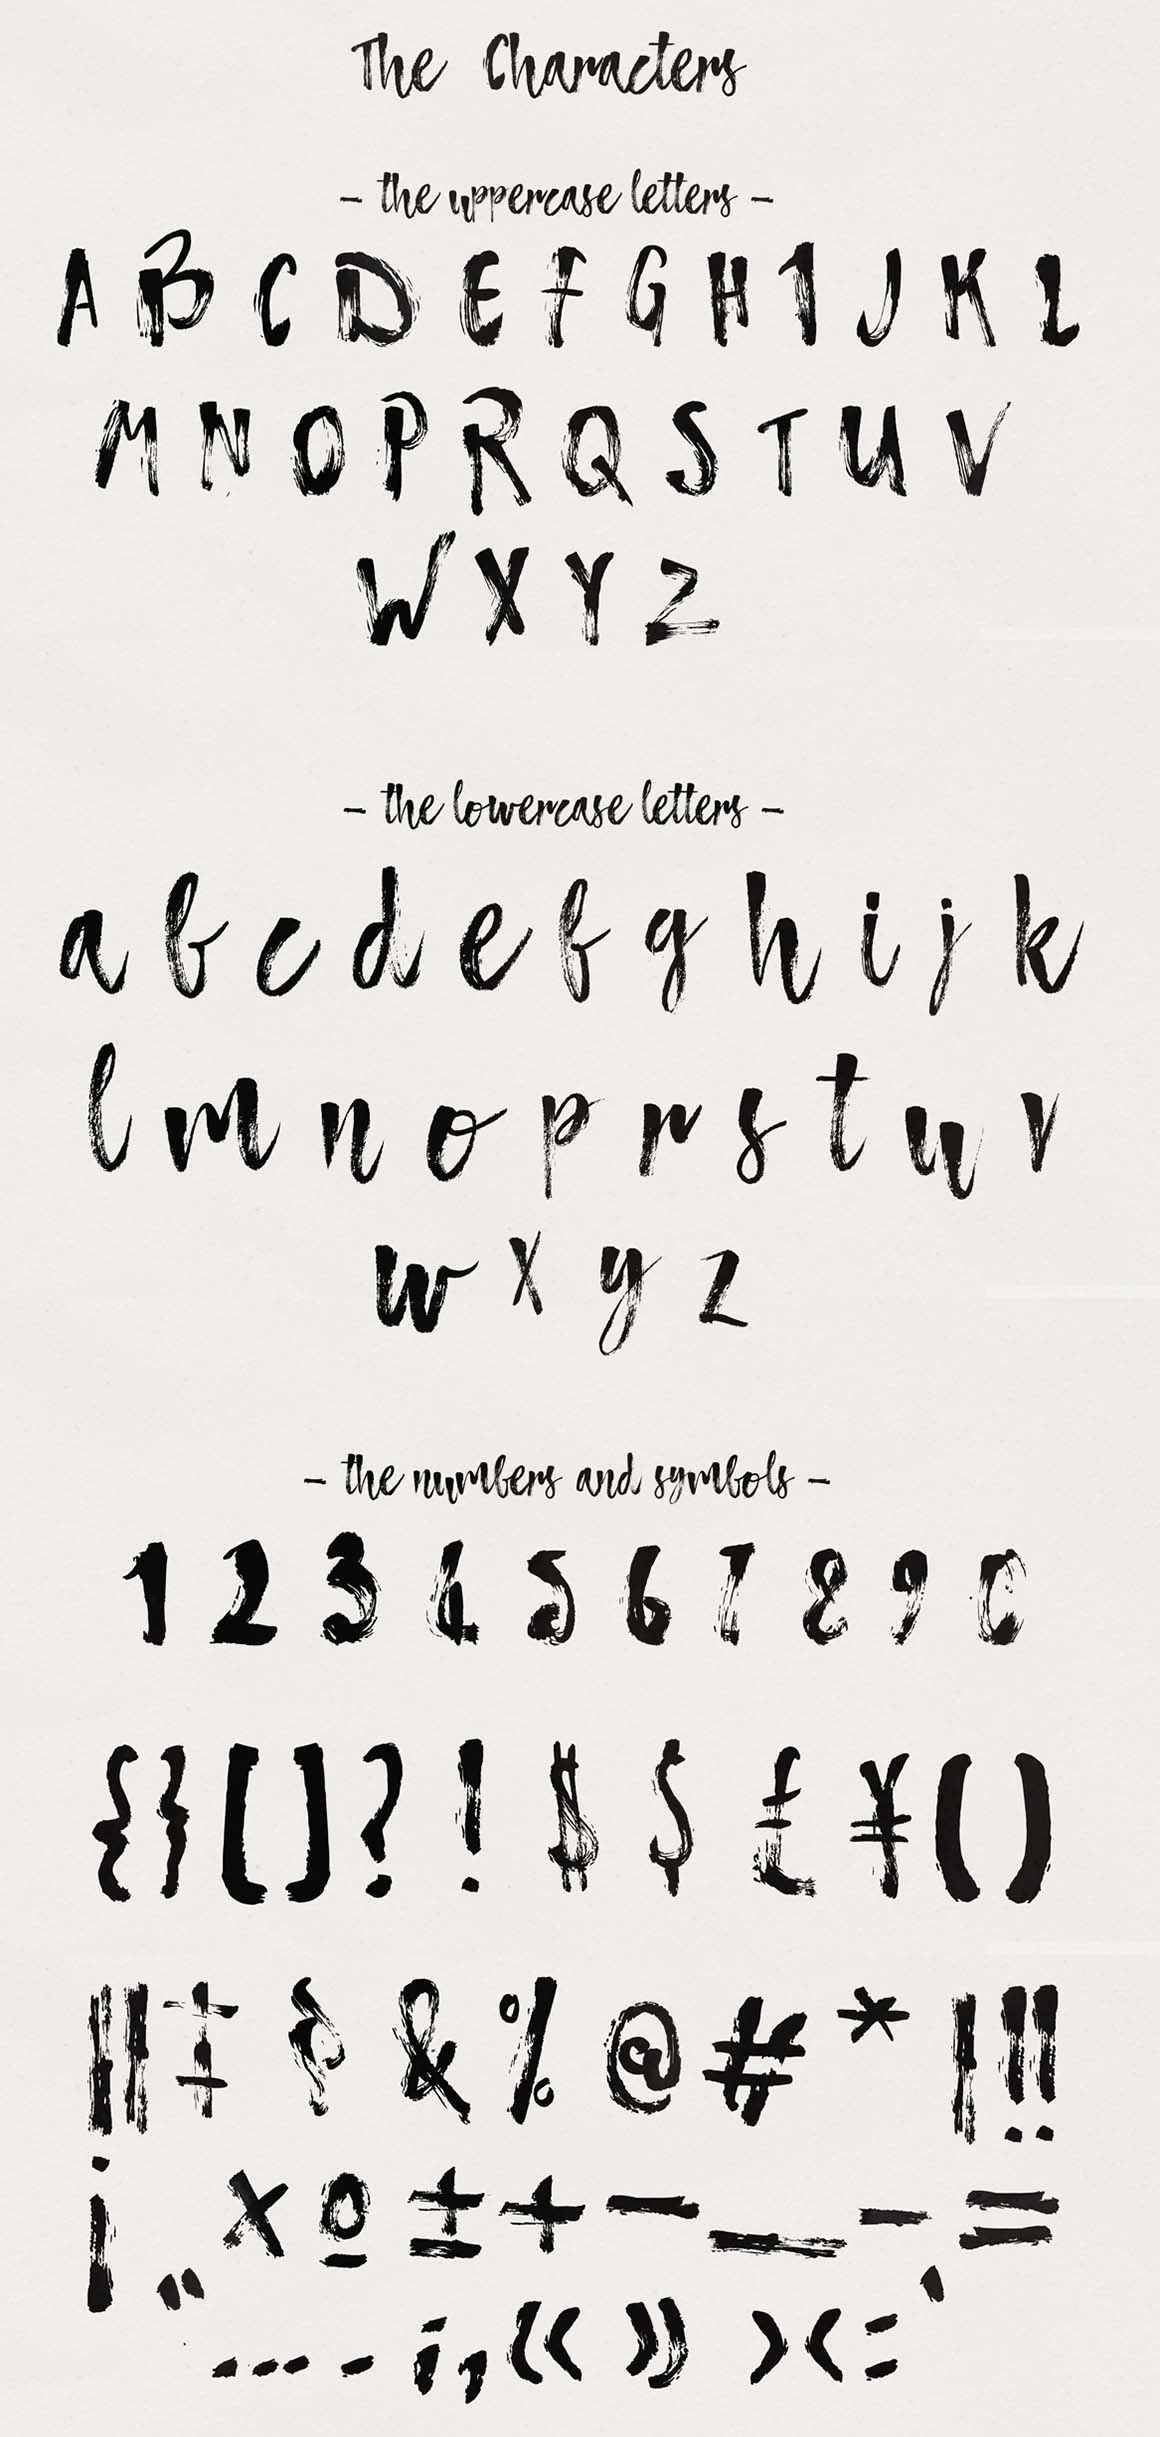 The Characters
– the uppercase letters –
A B C D E F G H I J K L
M N O P R Q S T U V
W X Y Z
– the lowercase letters –
a b c d e f g h i j k
l m n o p r s t u v
w x y z
– the numbers and symbols –
1 2 3 4 5 6 7 8 9 0
{ } [ ] ? ! $ $ £ ¥ ( )
‡ & % @ # * | !!
¡ „ × º ± + – _ - =
… . ; , « » › ‹ :